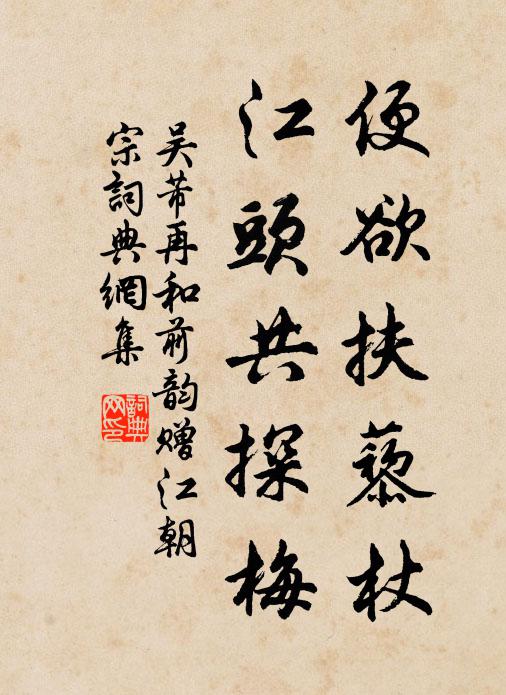 便欲扶藜杖
江頭共探梅
吴芾再和前韵赠江朝
宗詞典網集
詞典网印